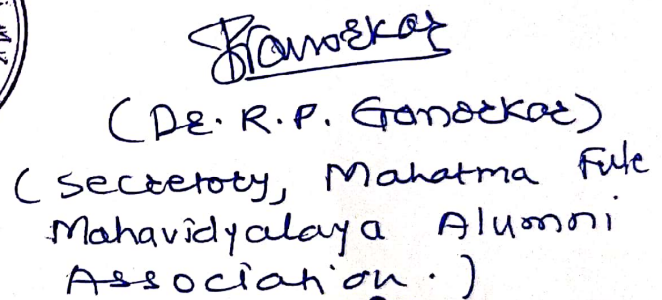 (Dr. R.P. Ganorkar)
(Secretory, Mahatma Fule
Mahavidyalaya Alumni
Association.)